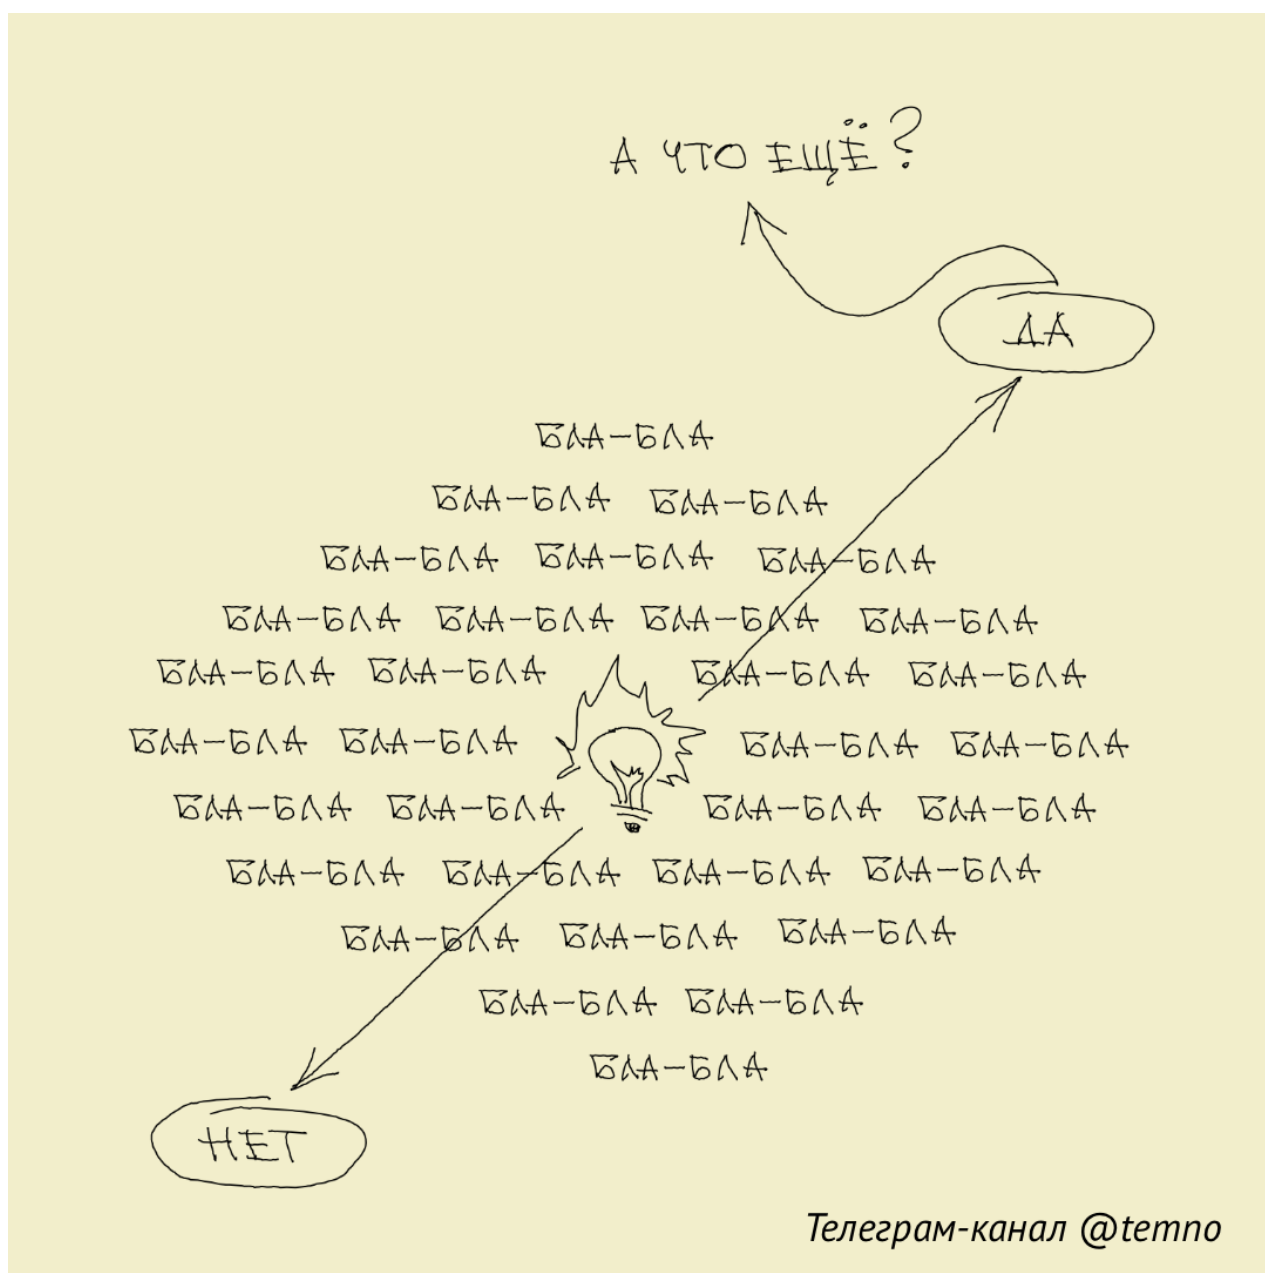 А ЧТО ЕЩЁ?
ДА
БЛА-БЛА
БЛА-БЛА БЛА-БЛА
БЛА-БЛА БЛА-БЛА БЛА-БЛА
БЛА-БЛА БЛА-БЛА БЛА-БЛА БЛА-БЛА
БЛА-БЛА БЛА-БЛА БЛА-БЛА БЛА-БЛА
БЛА-БЛА БЛА-БЛА БЛА-БЛА БЛА-БЛА
БЛА-БЛА БЛА-БЛА БЛА-БЛА БЛА-БЛА
БЛА-БЛА БЛА-БЛА БЛА-БЛА БЛА-БЛА
БЛА-БЛА БЛА-БЛА БЛА-БЛА
БЛА-БЛА БЛА-БЛА
БЛА-БЛА
НЕТ
Телеграм-канал @temno